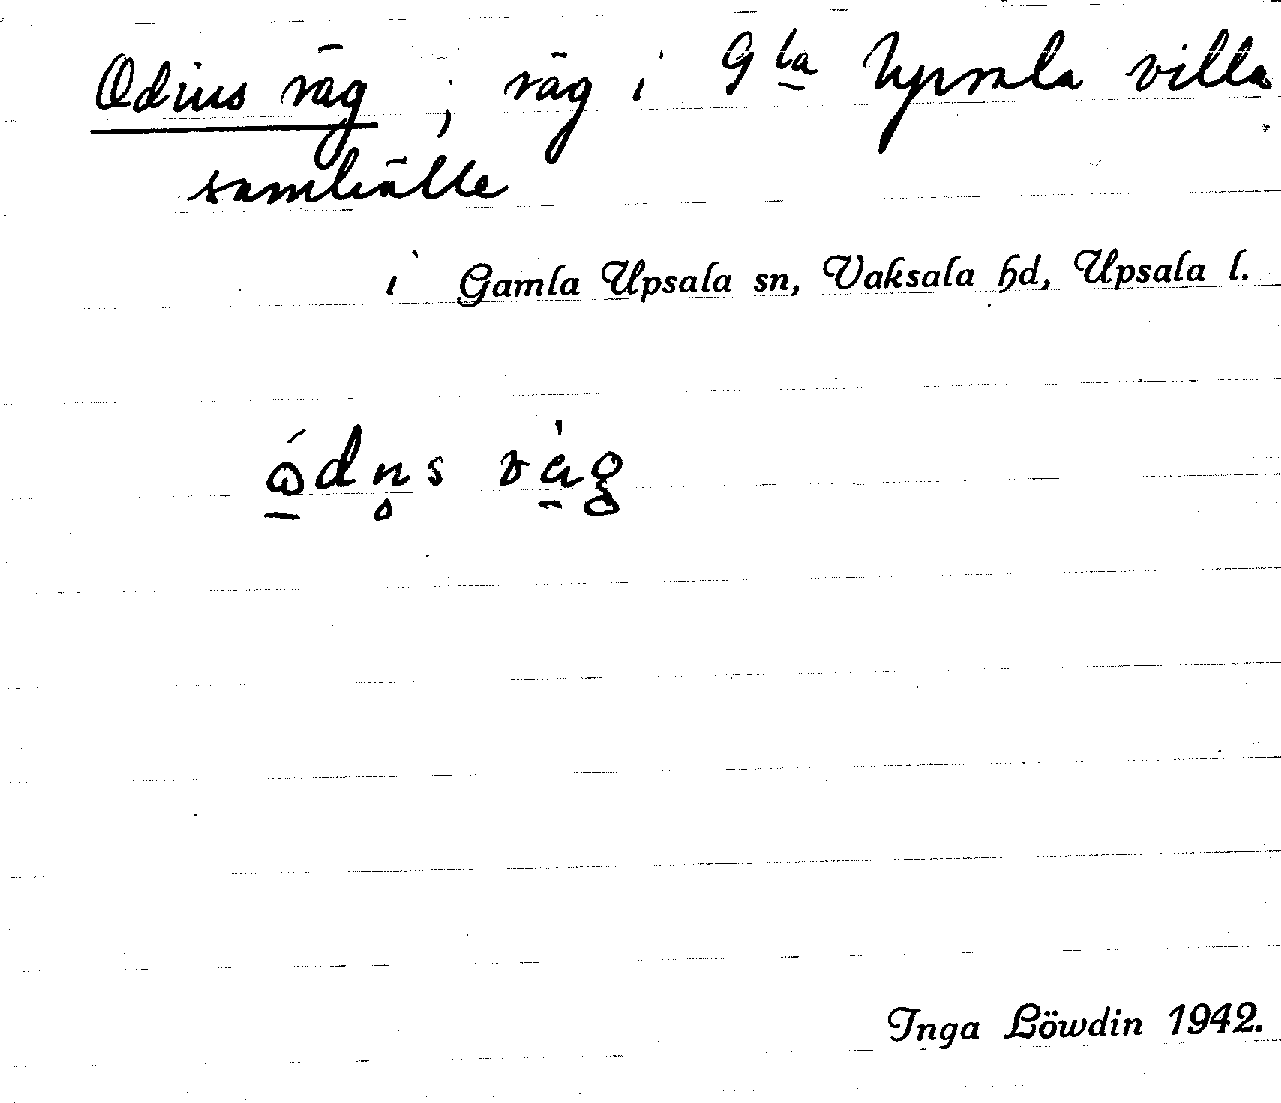 Odins väg ; väg i Gla Uppsala villa
samhälle
i Gamla Upsala sn, Vaksala hd, Upsala l.
Inga Löwdin 1942.